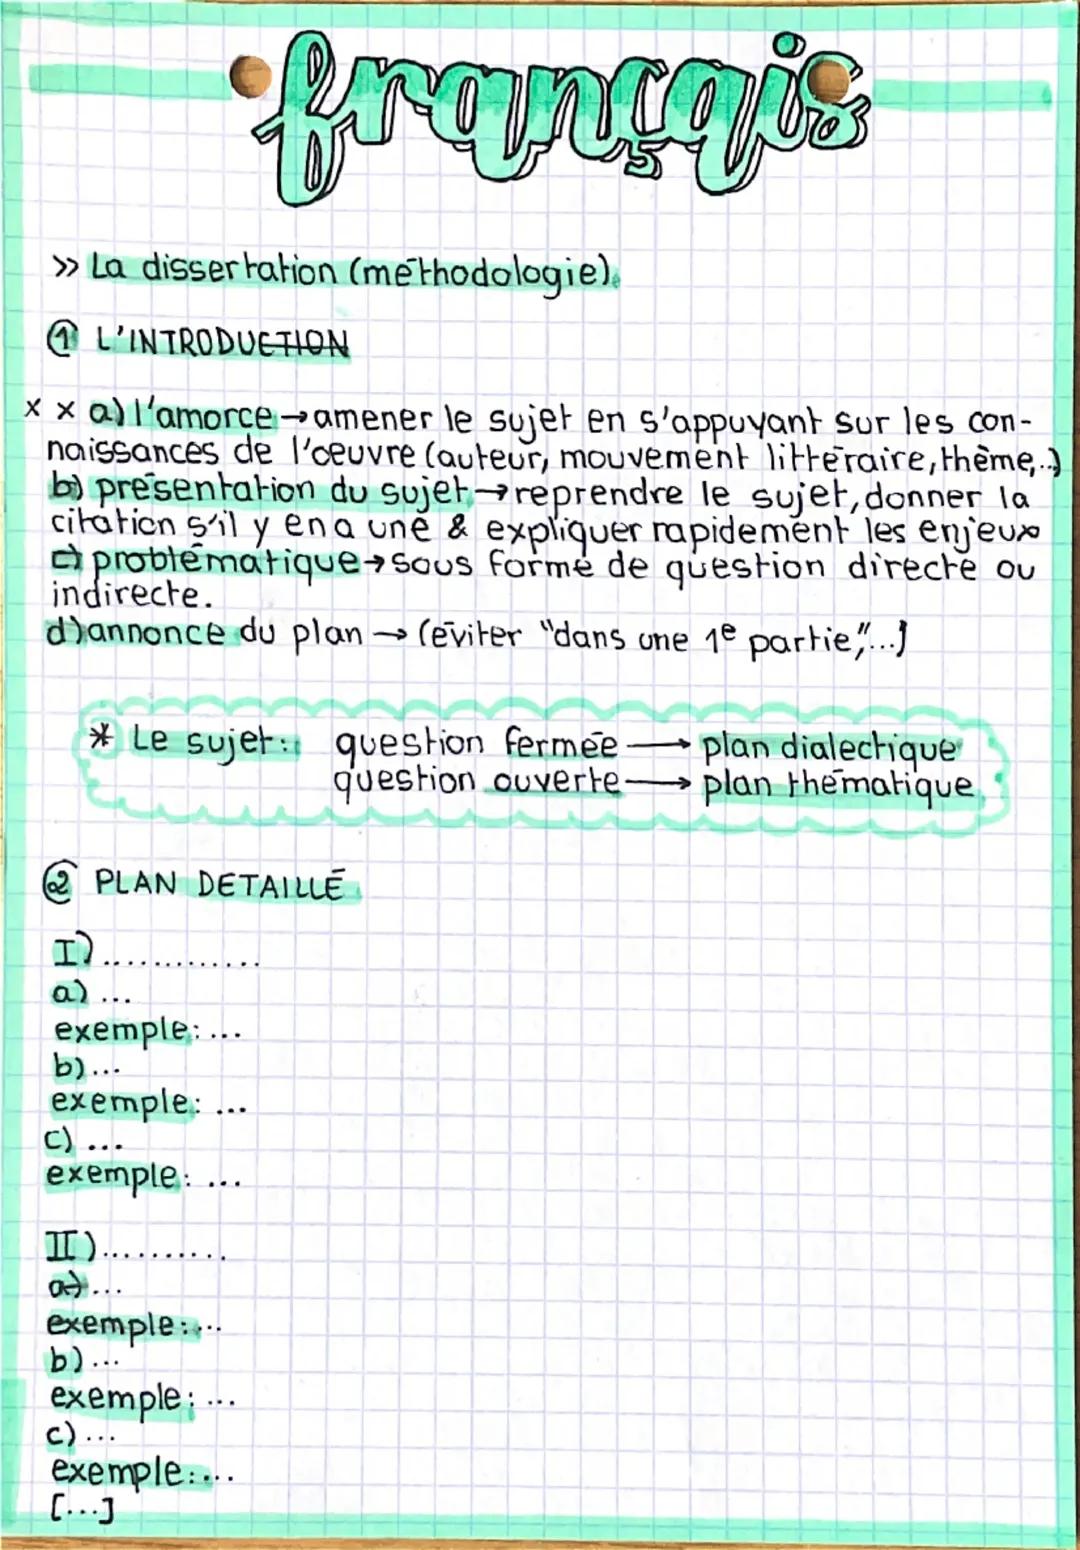 français
>> La dissertation (méthodologie).
① L'INTRODUCTION
x x a) l'amorce → amener le sujet en s'appuyant sur les con-
naissances de l'œuvre (auteur, mouvement littéraire, thème,..)
b) présentation du sujet → reprendre le sujet, donner la
citation s'il y en a une & expliquer rapidement les enjeux
c) problématique → sous forme de question directe ou
indirecte.
d) annonce du plan → (éviter "dans une 1e partie",...)
* Le sujet: question fermée → plan dialectique
question ouverte → plan thématique
② PLAN DETAILLÉ
I).............
a) ...
exemple: ...
b)...
exemple: ...
c) ...
exemple: ...
II)..........
a)...
exemple:...
b)...
exemple: ...
c)...
exemple:...
[...]